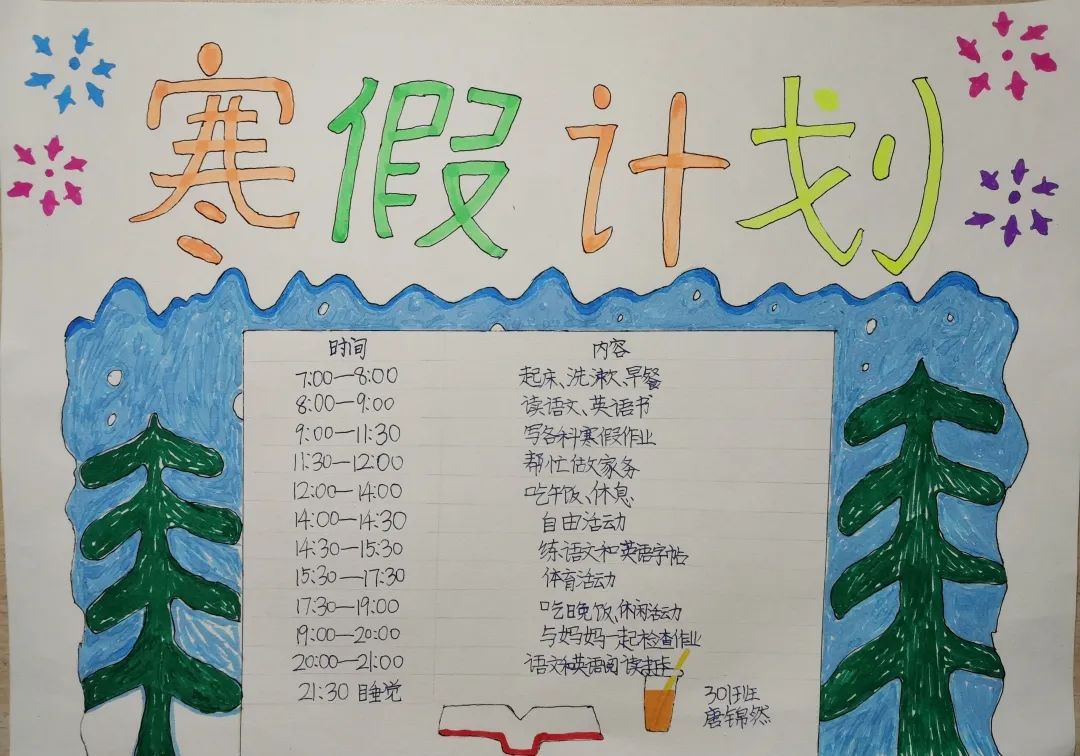 寒假计划
时间 内容
7:00—8:00 起床、洗漱、早餐
8:00—9:00 读语文、英语书
9:00—11:30 写各科寒假作业
11:30—12:00 帮忙做家务
12:00—14:00 吃午饭、休息
14:00—14:30 自由活动
14:30—15:30 练语文和英语字帖
15:30—17:30 体育活动
17:30—19:00 吃晚饭、休闲活动
19:00—20:00 与妈妈一起检查作业
20:00—21:00 语文和英语阅读打卡
21:30 睡觉
301班
唐锦然